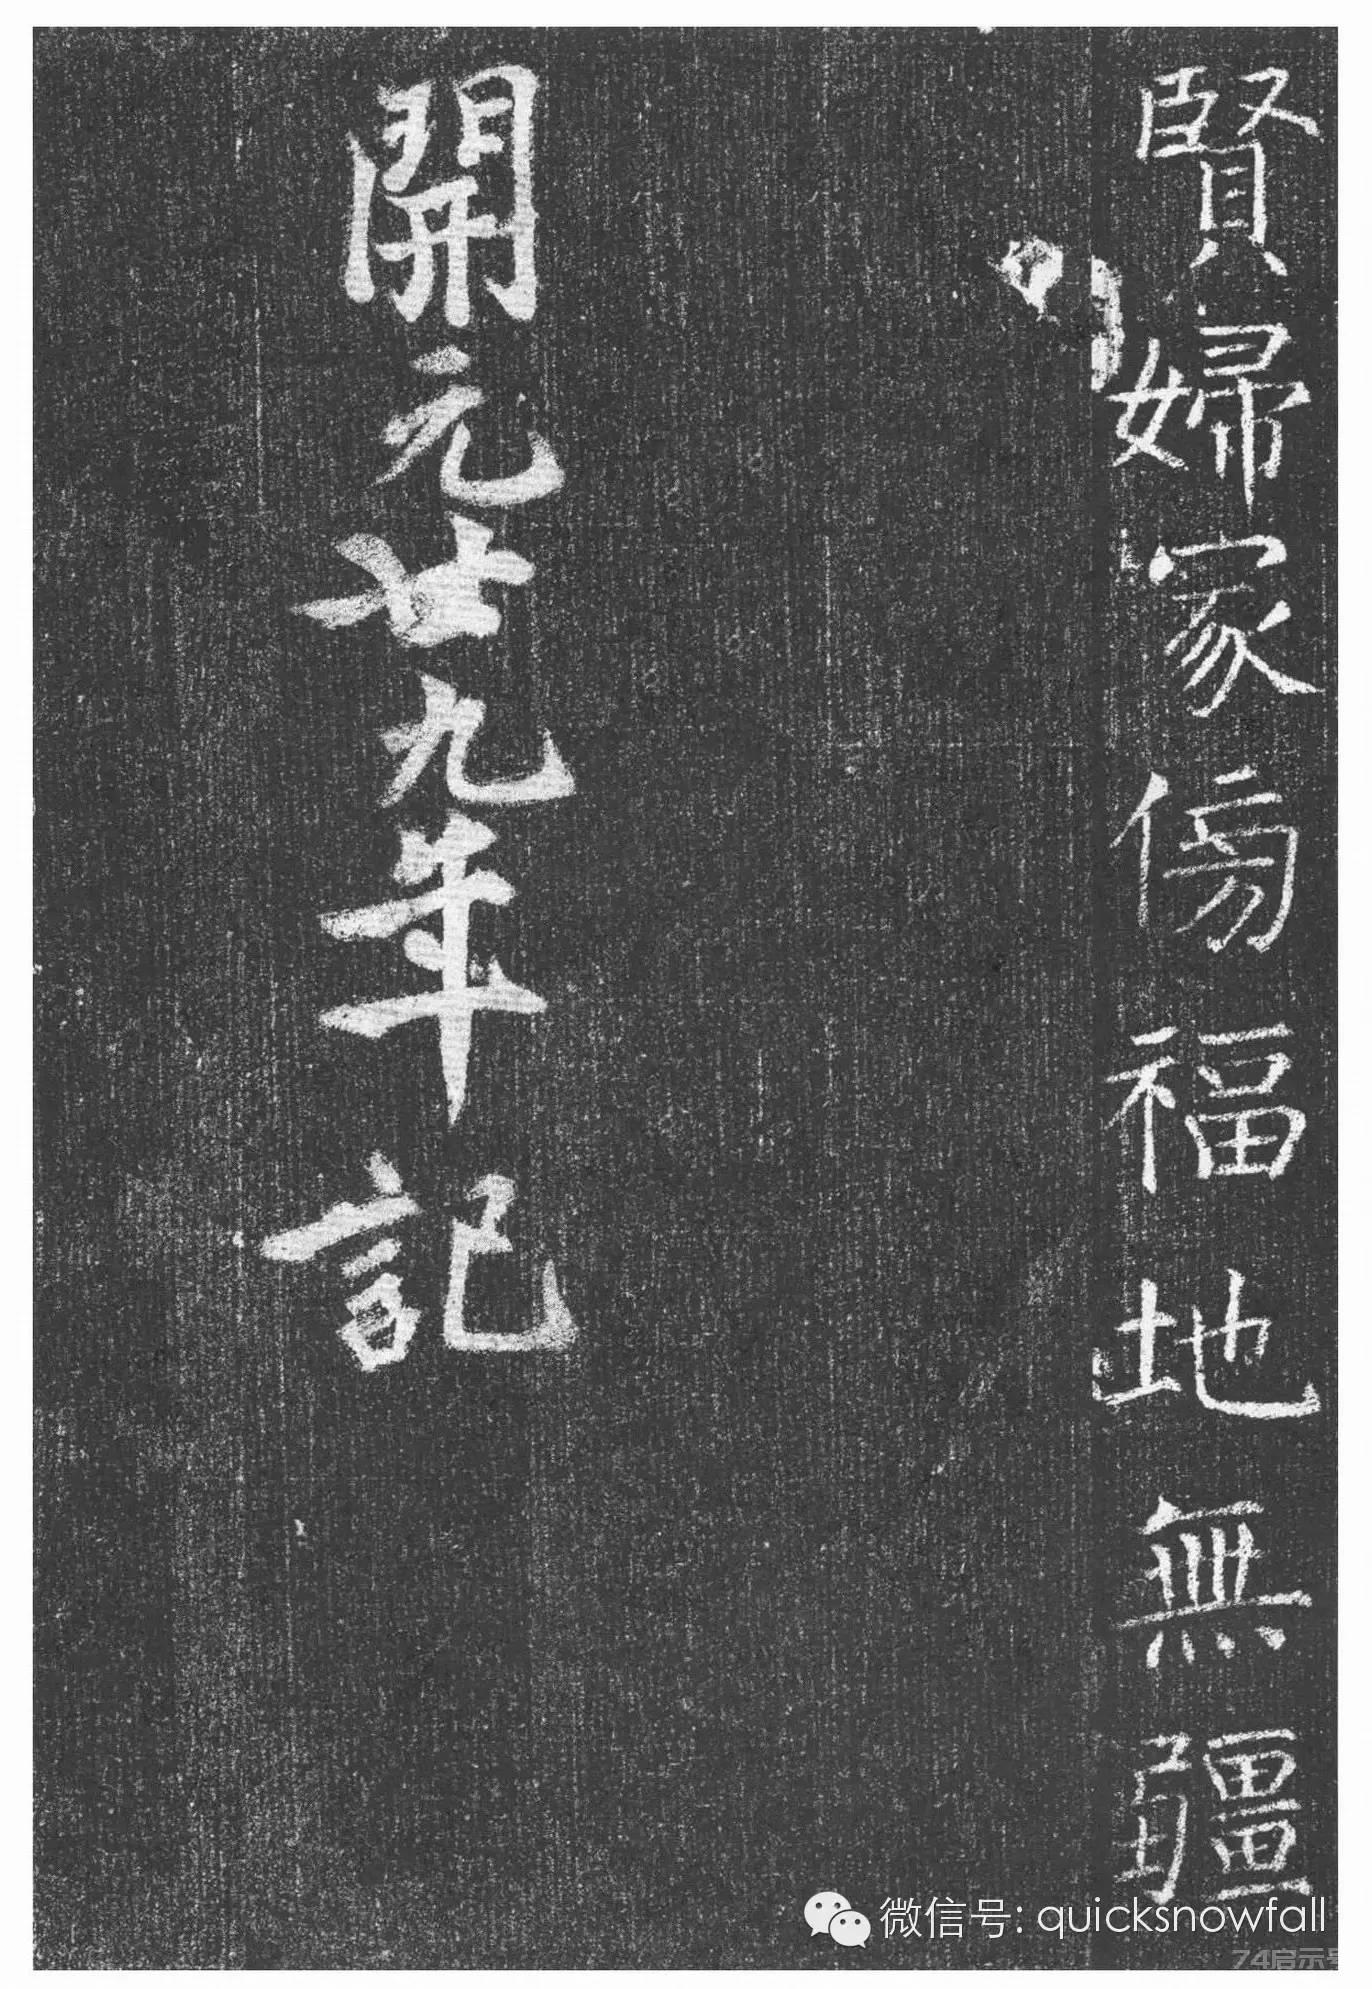 賢婦家傍福地無疆
開元廿九年記
微信号: quicksnowfall
74启示号